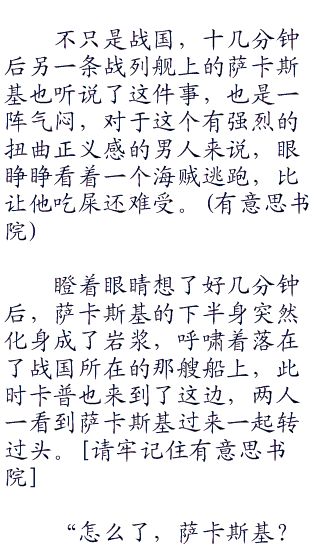 不只是战国，十几分钟
后另一条战列舰上的萨卡斯
基也听说了这件事，也是一
阵气闷，对于这个有强烈的
扭曲正义感的男人来说，眼
睁睁看着一个海贼逃跑，比
让他吃屎还难受。(有意思书
院)
瞪着眼睛想了好几分钟
后，萨卡斯基的下半身突然
化身成了岩浆，呼啸着落在
了战国所在的那艘船上，此
时卡普也来到了这边，两人
一看到萨卡斯基过来一起转
过头。[请牢记住有意思书
院]
“怎么了，萨卡斯基？